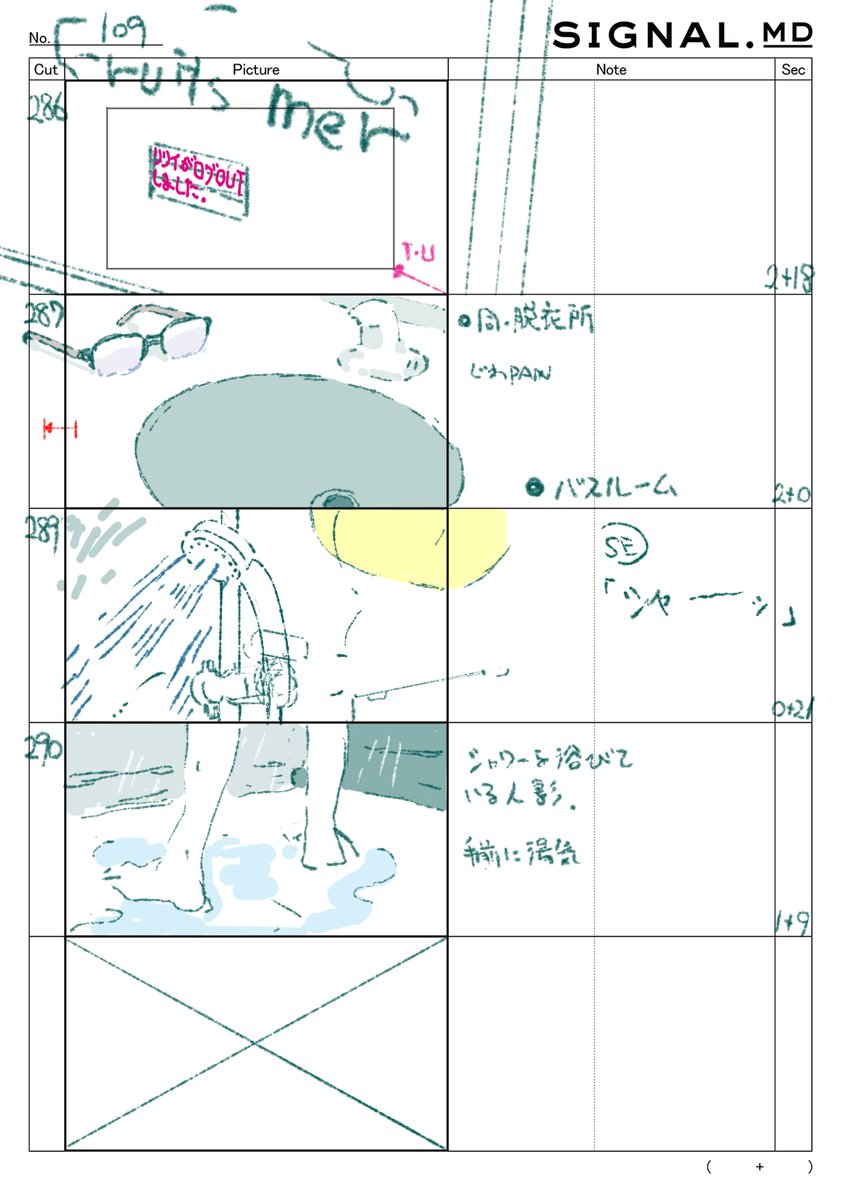 SIGNAL.MD
No. 109
Cut Picture Note Sec
286
リツイがログOUT
しました。
T.U
2+18
287
●同・脱衣所
じわPAN
●バスルーム
2+0
289
SE
「シャーーッ」
0+21
290
シャワーを浴びて
いる人影。
手前に湯気
1+9
( + )